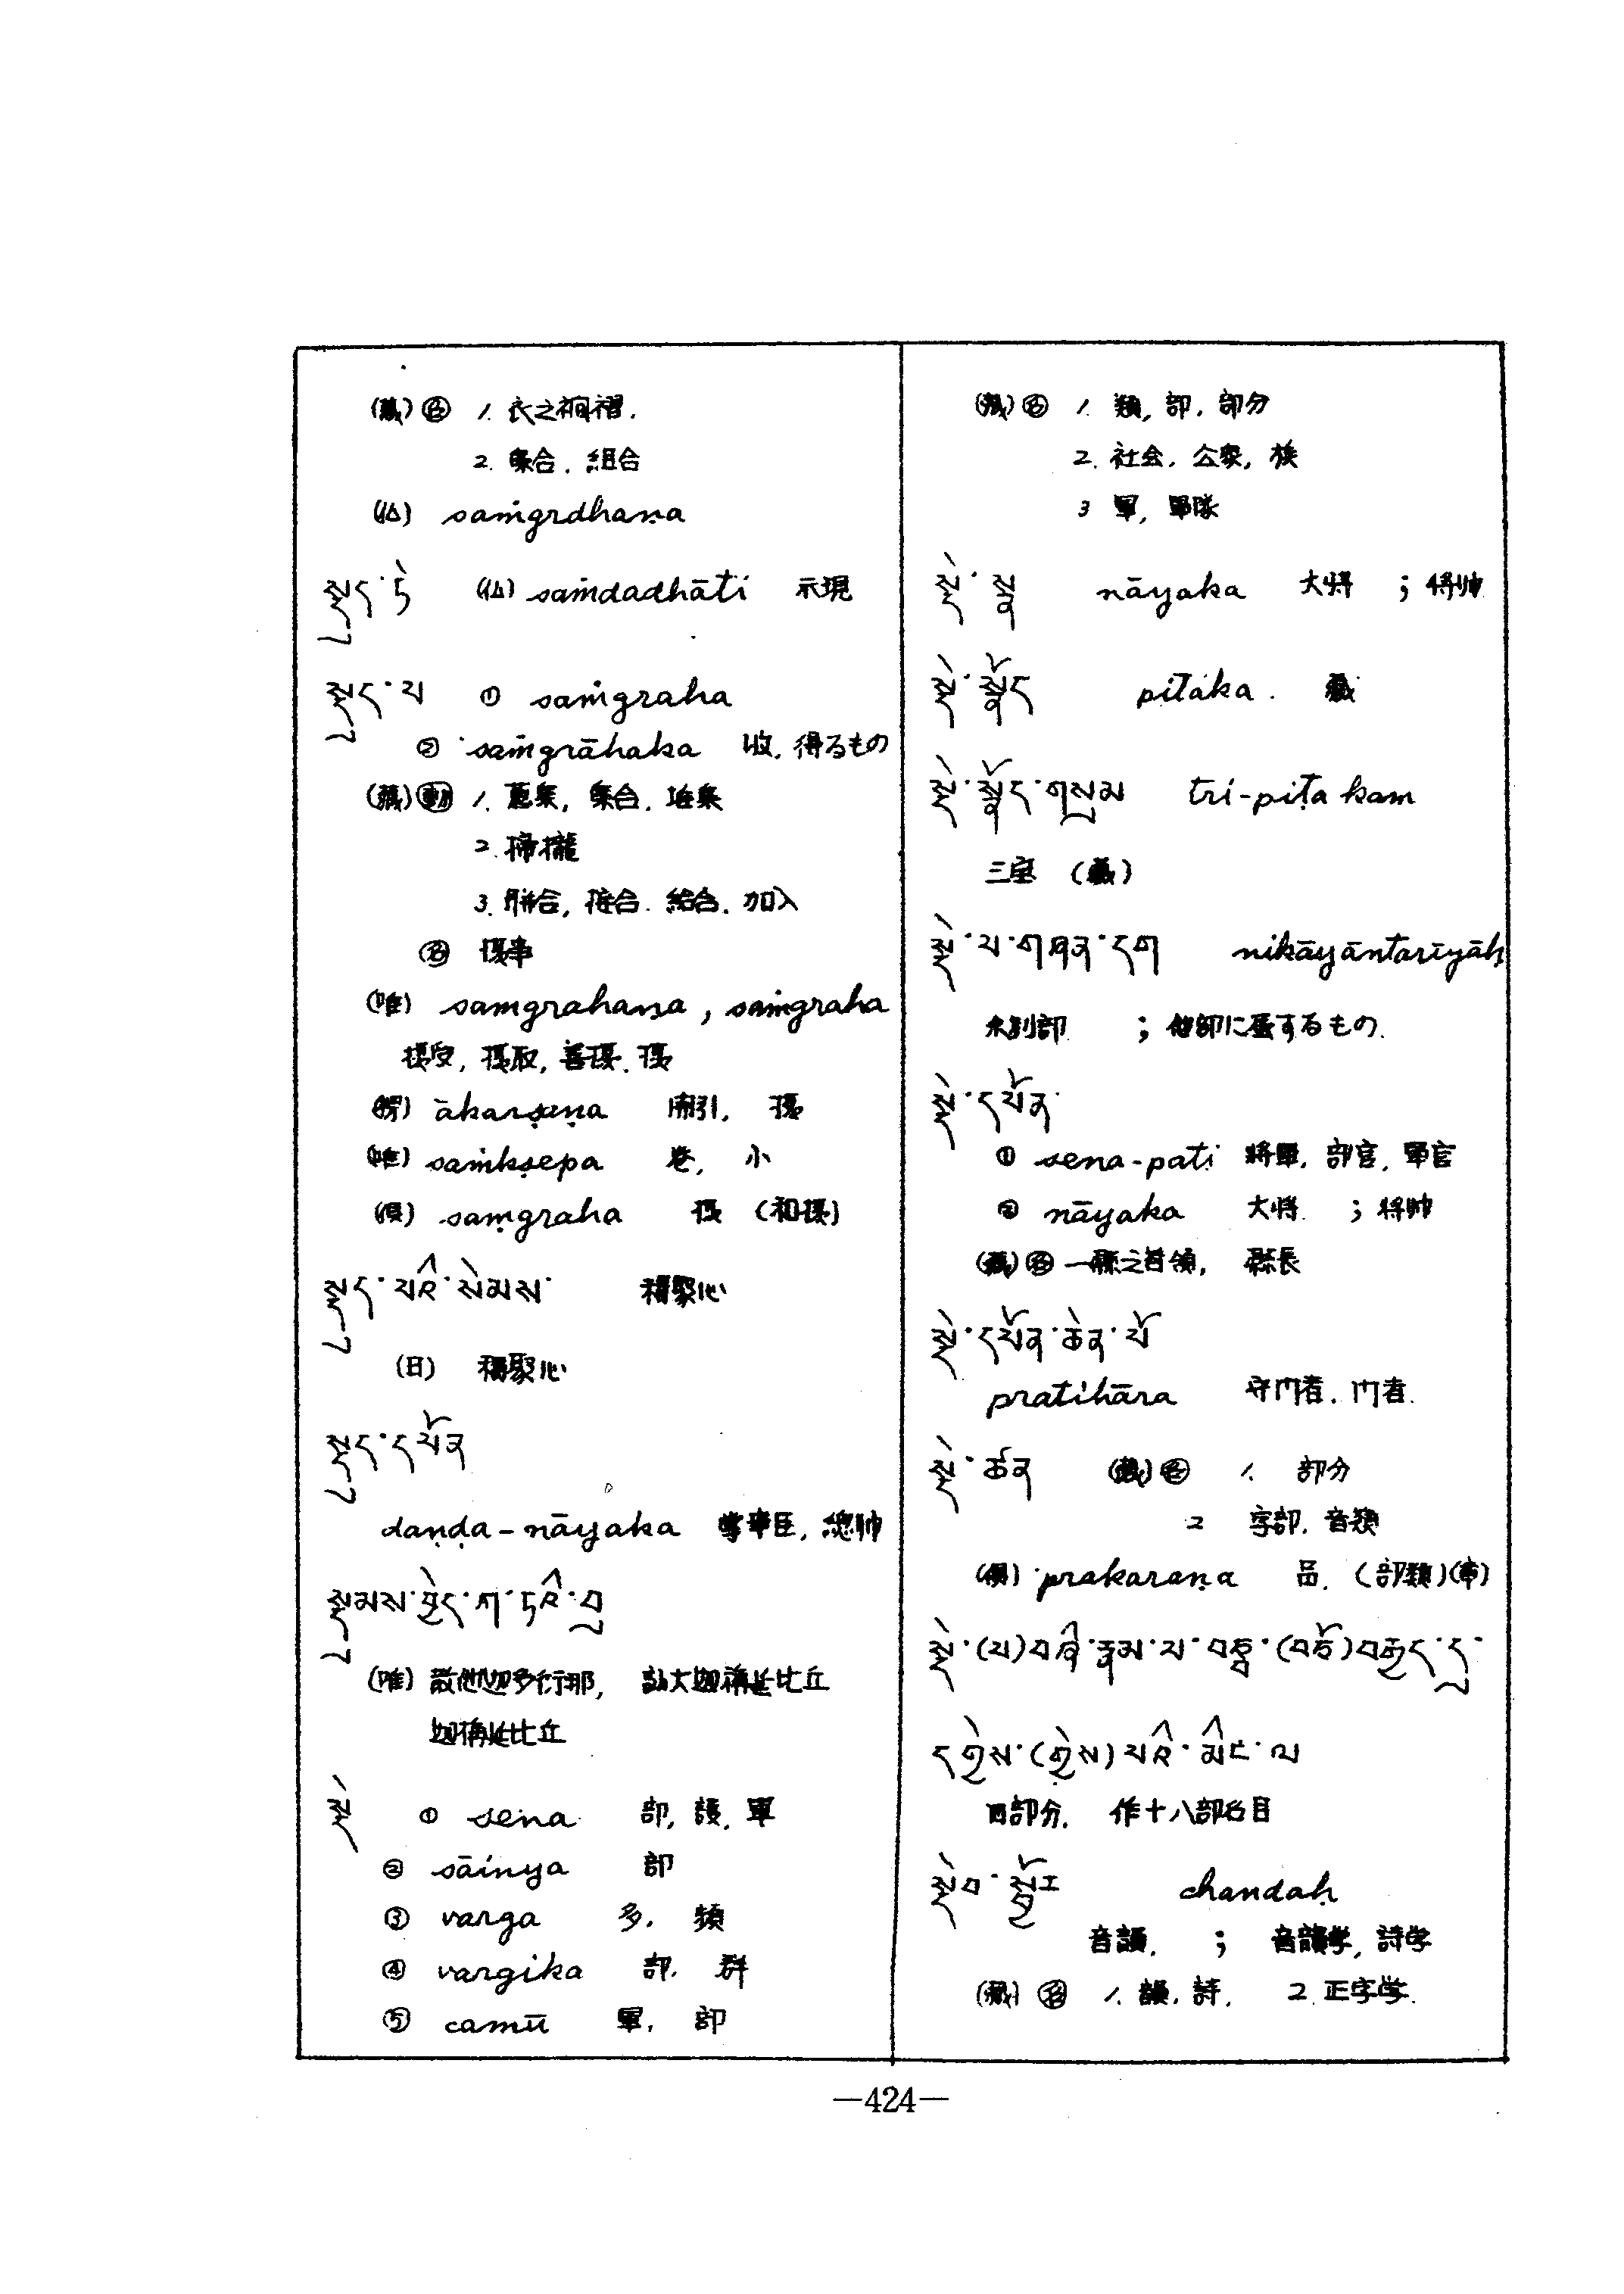 (藏)㊔ 1. 衣之襇褶.
2. 集合, 組合
(仏) saṁgrdhaṇa
སྡུད་དེ (仏) saṁdadhāti 示現
སྡུད་པ ① saṁgraha
② saṁgrāhaka 收, 得るもの
(藏) 1. 蒐集, 集合, 堆集
2. 掃攏
3. 併合, 接合. 給合. 加入
攝事
(唯) saṃgrahaṇa, saṁgraha
攝受, 攝取, 善攝. 攝
ākarṣaṇa 牽引, 攝
(唯) saṁkṣepa 卷, 小
saṃgraha 攝 (和攝)
སྡུད་པའི་སེམས་ 積聚心
(日) 積聚心
སྡུད་དཔོན
daṇḍa-nāyaka 掌事臣, 總帥
སྡུམས་བྱེད་ཀ་ཏའི་བུ
(唯)
迦旃延比丘
སྡེ ① sena 部, 護, 軍
② sāinya 部
③ varga 多. 類
④ vargika 部. 群
⑤ camū 軍. 部
(藏) 1. 類, 部. 部分
2. 社会. 公衆, 族
3 軍, 軍隊
སྡེ་སྣ nāyaka 大将 ; 將帅
སྡེ་སྣོད pitaka. 藏
སྡེ་སྣོད་གསུམ tri-piṭa kam
三宝 (藏)
སྡེ་པ་གཞན་དག nikāyāntarīyāḥ
未別部 ; 他部に属するもの.
སྡེ་དཔོན་
① sena-pati 將軍. 部官. 軍官
② nāyaka 大将. ; 将帥
(藏) 一縣之首領, 縣長
སྡེ་དཔོན་ཆེན་པོ
pratihāra 守門者. 門者.
སྡེ་ཚན (藏) 1. 部分
2 字部. 音類
prakaraṇa 品. (部類)(章)
སྡེ་(པ)བཞི་རྣམ་པ་བཅྭ་(བཅོ)བརྒྱད་དུ་
དགྱེས་(གྱེས)པའི་མིང་ལ
四部分. 作十八部名目
སྡེབ་སྦྱོར chandaḥ
音韻. ; 音韻学, 詩学
(藏) 1. 韻. 詩. 2. 正字学.
—424—